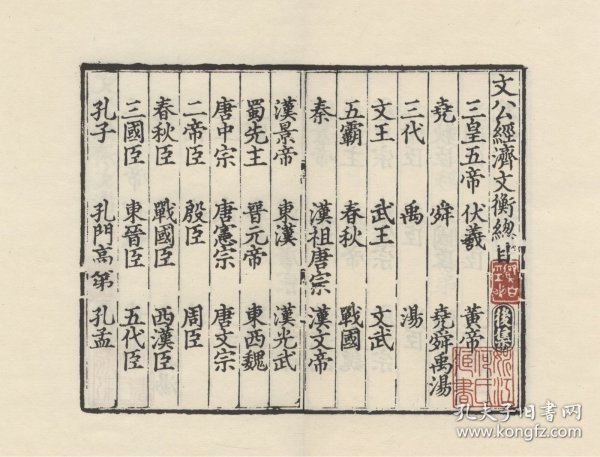 文公經濟文衡總目 後集
三皇五帝 伏羲 黃帝
堯 舜 堯舜禹湯
三代 禹 湯
文王 武王 文武
五霸 春秋 戰國
秦 漢祖唐宗 漢文帝
漢景帝 東漢 漢光武
蜀先主 晉元帝 東西魏
唐中宗 唐憲宗 唐文宗
二帝臣 殷臣 周臣
春秋臣 戰國臣 西漢臣
三國臣 東晉臣 五代臣
孔子 孔門高第 孔孟
孔夫子旧书网
www.kongfz.com